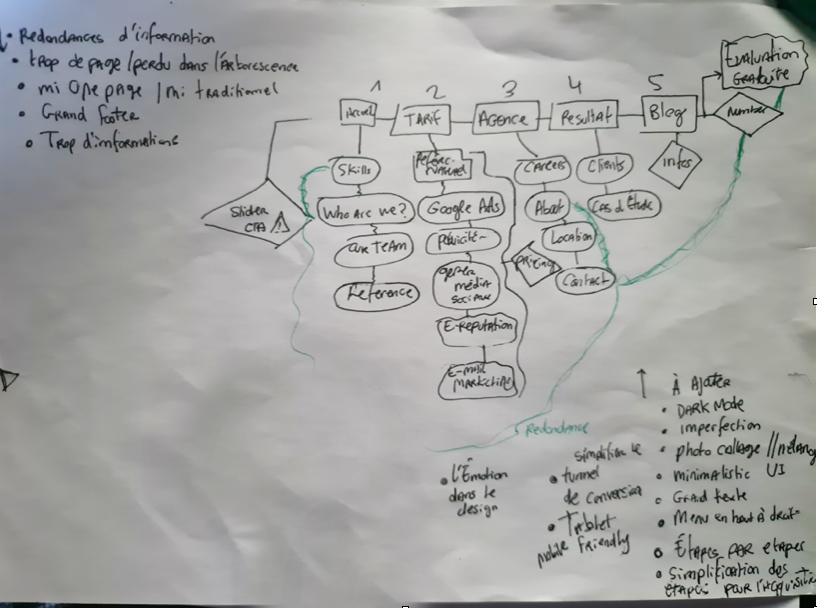 • Redondances d'information
• trop de page/perdu dans l'Arborescence
• mi One page / mi traditionnel
• Grand footer
• Trop d'informations
Evaluation
Gratuite
Number
1 2 3 4 5
Accueil
TARIF
AGENCE
Resultat
Blog
infos
Skills
Who Are we?
our TEAM
Référence
Slider
CTA
Google Ads
E-Reputation
E-mail
MARKETING
pricing
Careers
About
Location
Contact
Clients
Cas d'Étude
Redondance
• l'Émotion
dans le
design
simplifier le
• tunnel
de conversion
• Tablet
mobile Friendly
↑ À Ajouter
• DARK Mode
• imperfection
• photo collage //
• minimalistic UI
• Grand texte
• Menu en haut à droite
• Étapes PAR etapes
• Simplification des
étapes pour l'acquisition